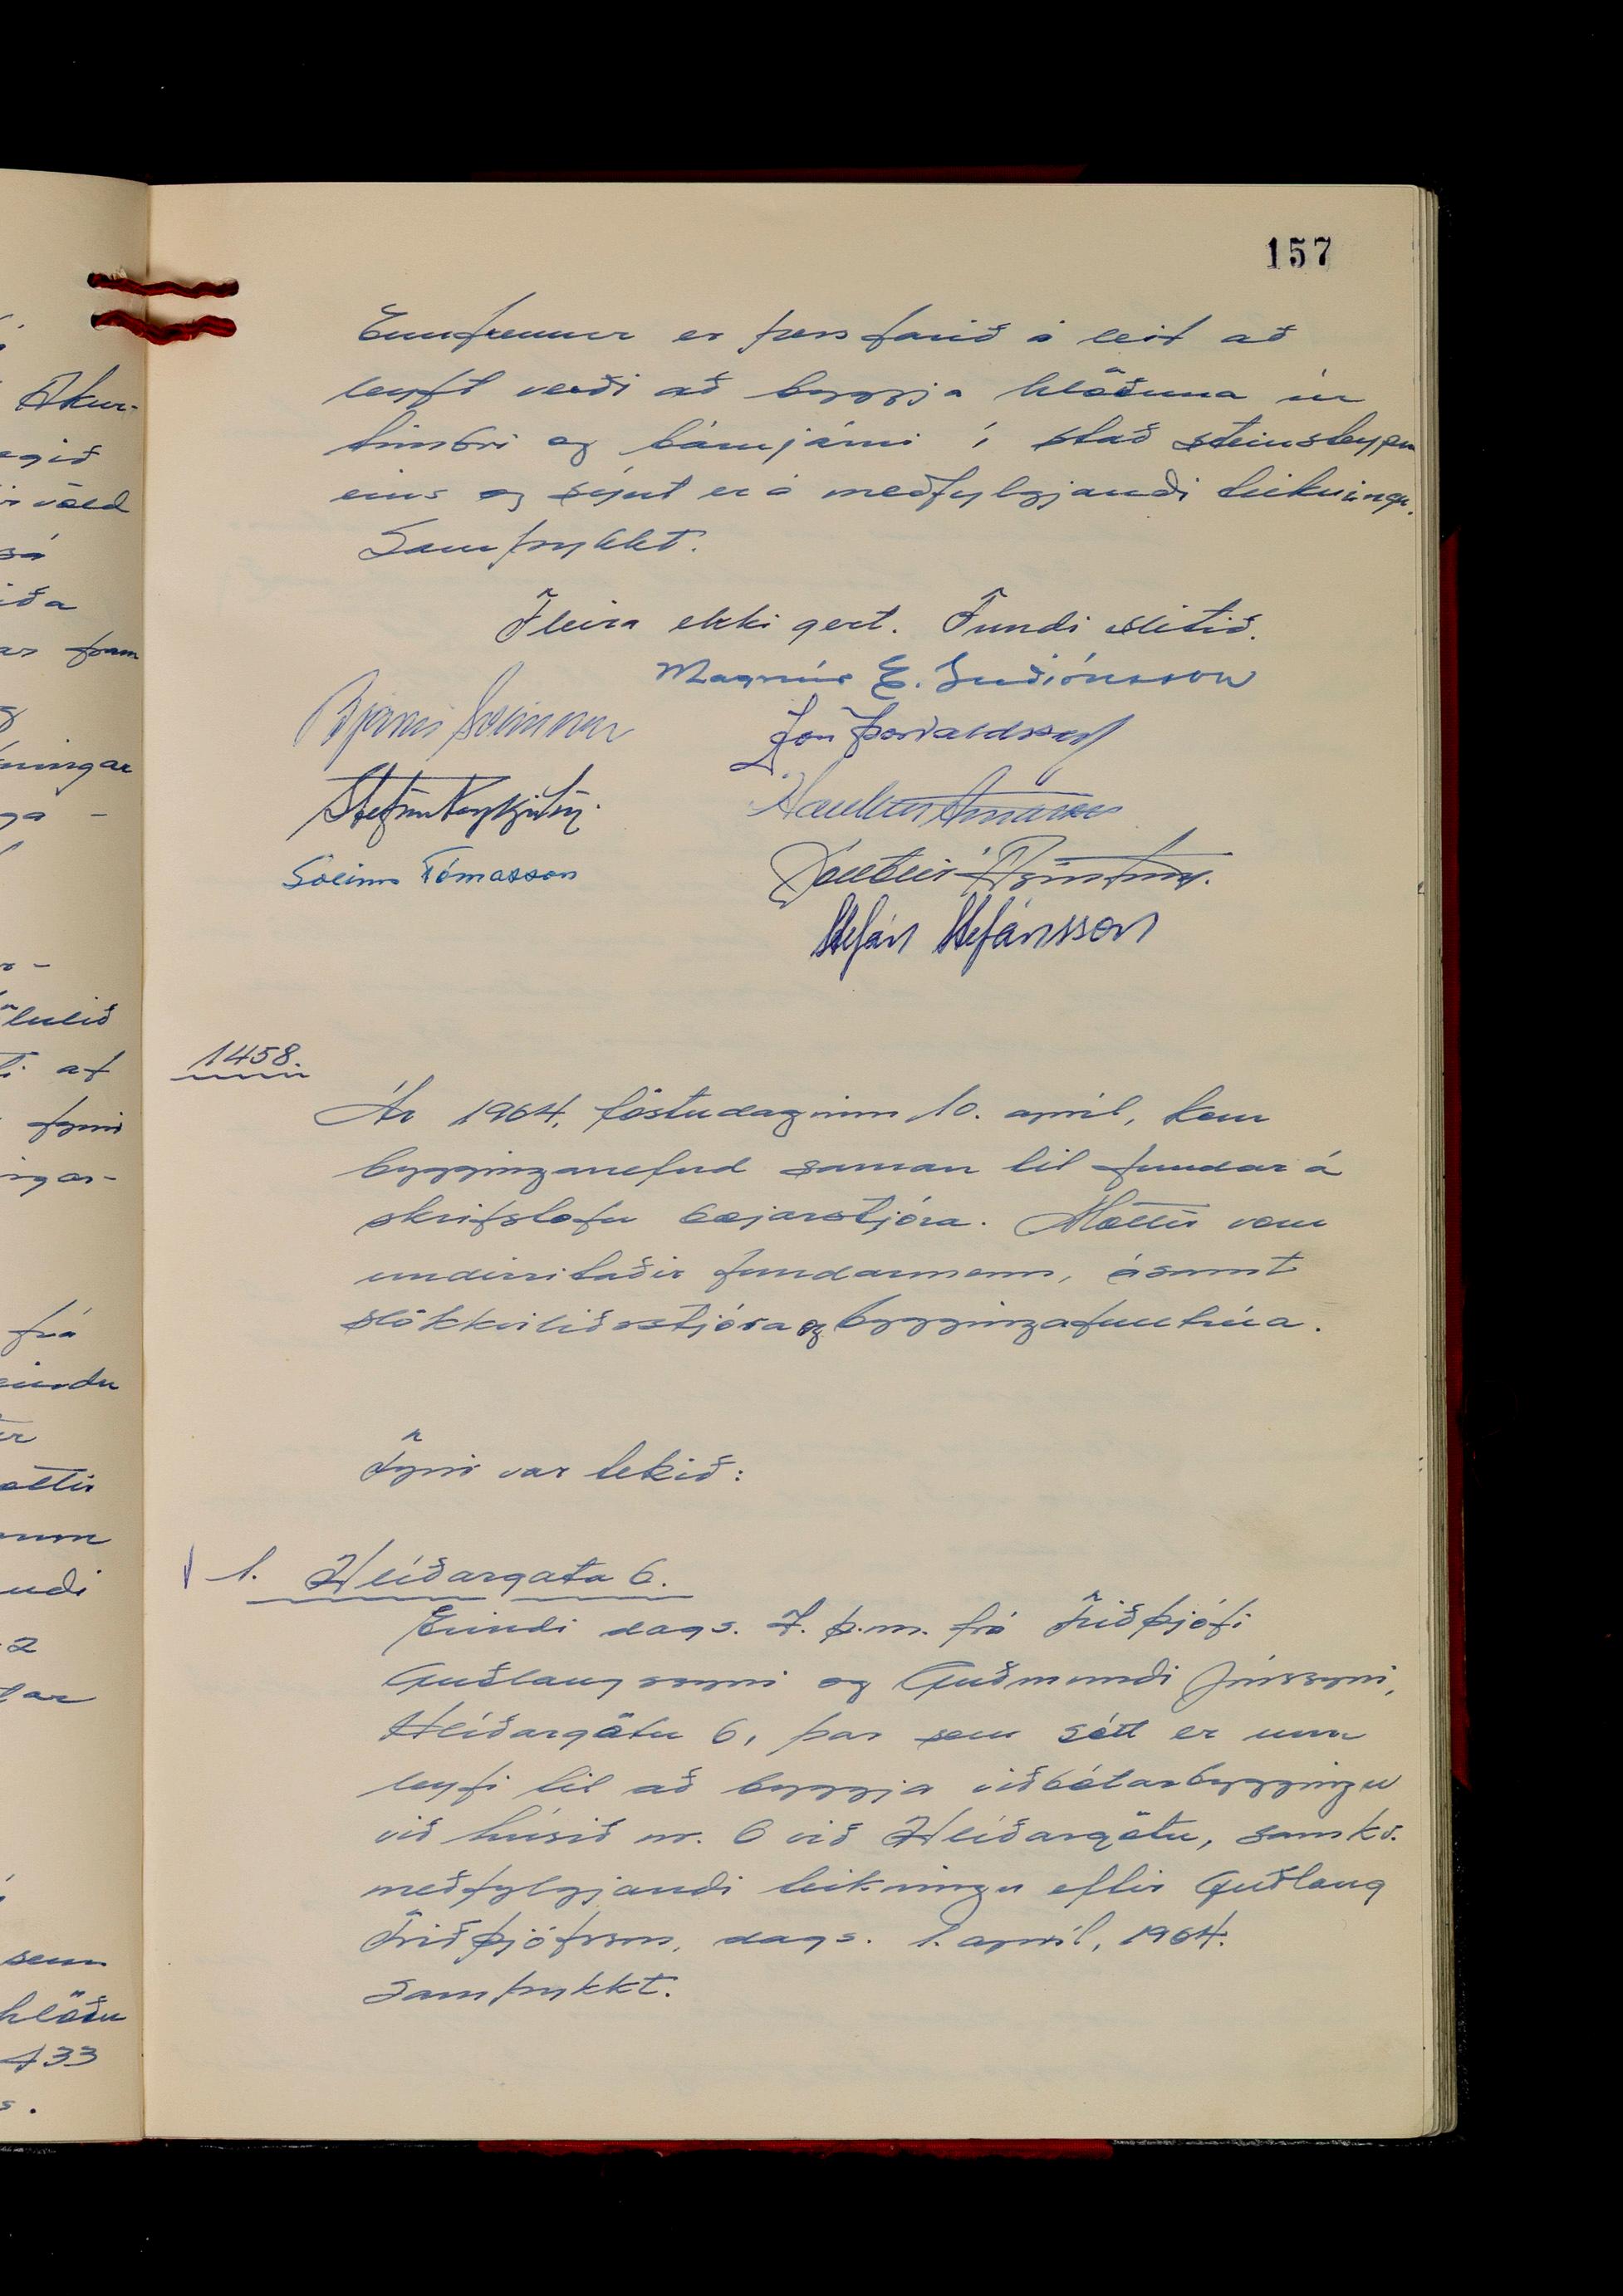 157
Ennfremur er þess farið á leit að
leyft verði að byggja hlöðuna úr
timbri og bárujárni í stað steinsteypu
eins og sýnt er á meðfylgjandi teikningu.
Samþykkt.
Fleira ekki gert. Fundi slitið.
Magnús E. Guðjónsson
Bjarni Sveinsson
Jón Þorvaldsson
Stefán Reykjalín
Haukur Árnason
Sveinn Tómasson
Stefán Stefánsson
1458.
Ár 1964, föstudaginn 10. apríl, kom
bygginganefnd saman til fundar á
skrifstofu bæjarstjóra. Mættir voru
undirritaðir fundarmenn, ásamt
slökkviliðsstjóra og byggingafulltrúa.
Fyrir var tekið:
1. Hlíðargata 6.
Erindi dags. 7. þ.m. frá Friðþjófi
Guðlaugssyni og Guðmundi Jónssyni,
Hlíðargötu 6, þar sem sótt er um
leyfi til að byggja viðbótarbyggingu
við húsið nr. 6 við Hlíðargötu, samkv.
meðfylgjandi teikningu eftir Guðlaug
Friðþjófsson, dags. 1. apríl, 1964.
Samþykkt.
Akur-
egið
völd
sá
iða
ar fram
ningar
ga -
lulið
af
fyrir
ngar-
frá
eindu
ættir
num
ndi
2
sem
hlöðu
133